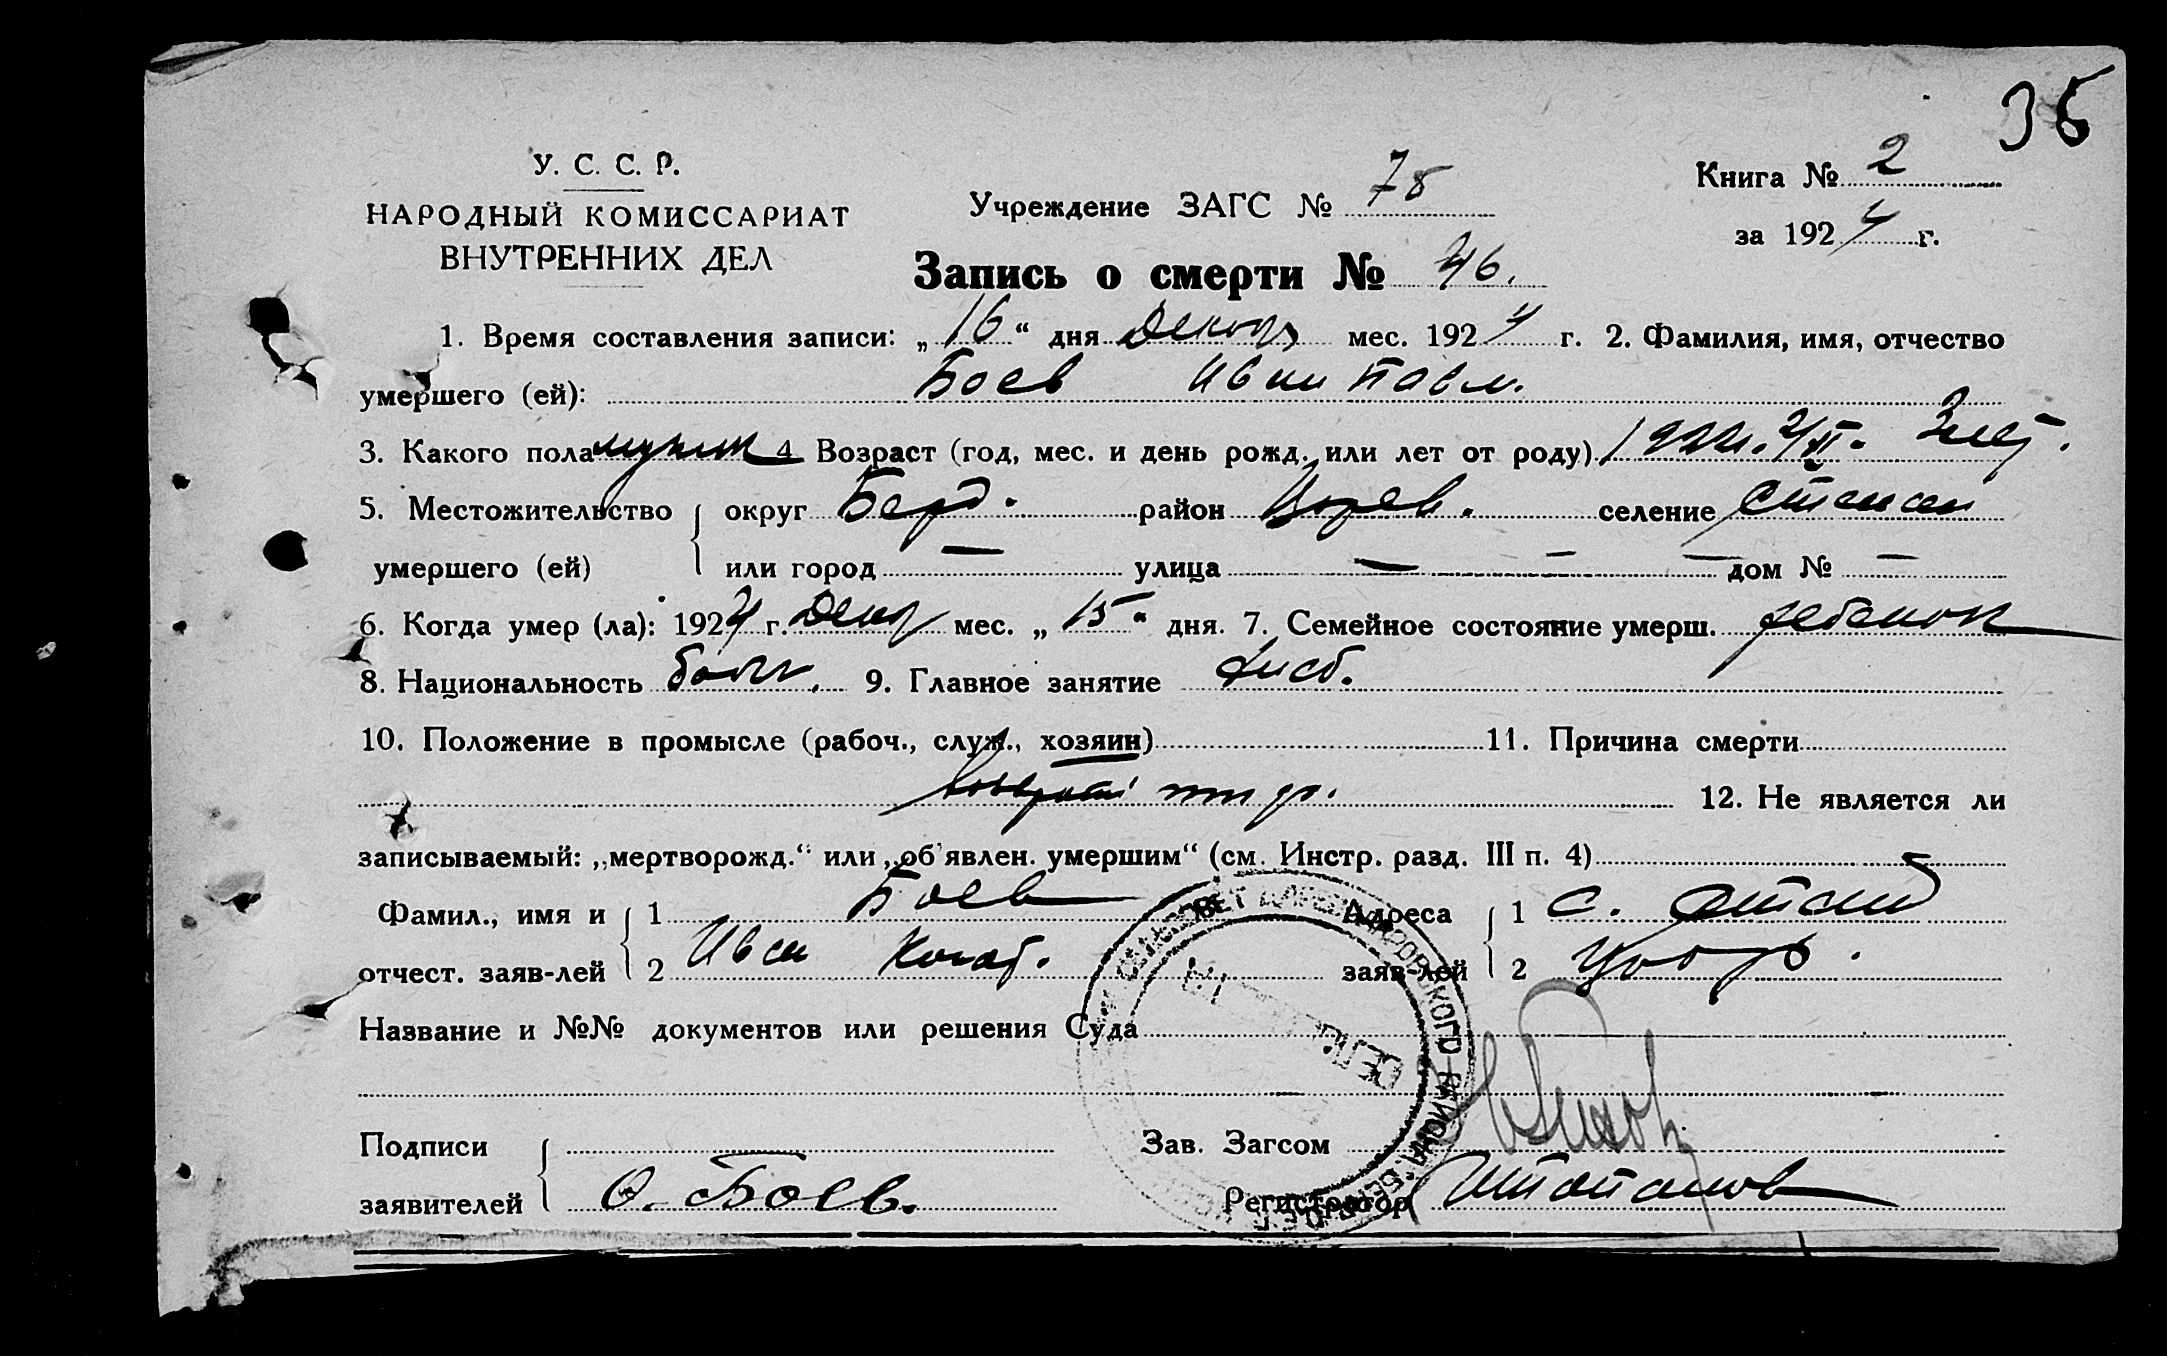 36
У. С. С. Р.
НАРОДНЫЙ КОМИССАРИАТ
ВНУТРЕННИХ ДЕЛ
Учреждение ЗАГС № 78
Книга № 2
за 1924 г.
Запись о смерти № 46.
1. Время составления записи: „16“ дня мес. 1924 г. 2. Фамилия, имя, отчество
умершего (ей): Боев Иван
3. Какого пола мужск 4. Возраст (год, мес. и день рожд. или лет от роду)
5. Местожительство округ Берд. район селение
умершего (ей) или город — улица — — — дом № —
6. Когда умер (ла): 1924 г. мес. „15“ дня. 7. Семейное состояние умерш. ребенок
8. Национальность болг. 9. Главное занятие
10. Положение в промысле (рабоч., служ., хозяин) 11. Причина смерти
12. Не является ли
записываемый: „мертворожд.“ или „об'явлен. умершим“ (см. Инстр. разд. III п. 4)
Фамил., имя и 1 Боев Адреса 1 с.
отчест. заяв-лей 2 Иван заяв-лей 2
Название и №№ документов или решения Суда
Подписи Зав. Загсом
заявителей О. Боев. Регистратор